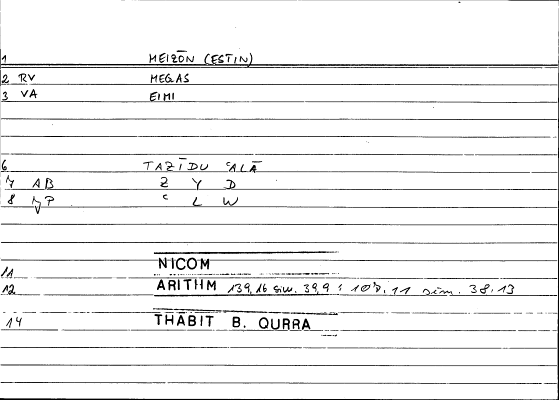 1 MEIZŌN (ESTIN)
2 RV MEGAS
3 VA EIMI
6 TAZĪDU ʿALĀ
7 AB Z Y D
8 NP ʿ L W
11 NICOM
12 ARITHM 139,16 sim. 39,9 : 107,11 sim. 38,13
14 THABIT B. QURRA